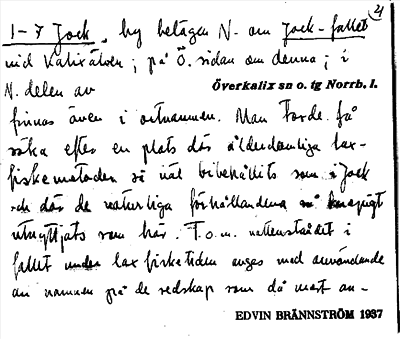 4
1-7 Jock, by belägen N. om Jock-fallet
vid Kalixälven; på Ö. sidan om denna; i
N. delen av
Överkalix sn o. tg Norrb. l.
finnas även i ortnamnen. Man torde få
söka efter en plats där ålderdomliga lax-
fiskemetoder så väl bibehållits som i Jock
och där de naturliga förhållandena så knepigt
utnyttjats som här. T.o.m. vattenståndet i
fallet under laxfisketiden anges med användande
av namnen på de redskap som då mest an-
EDVIN BRÄNNSTRÖM 1937